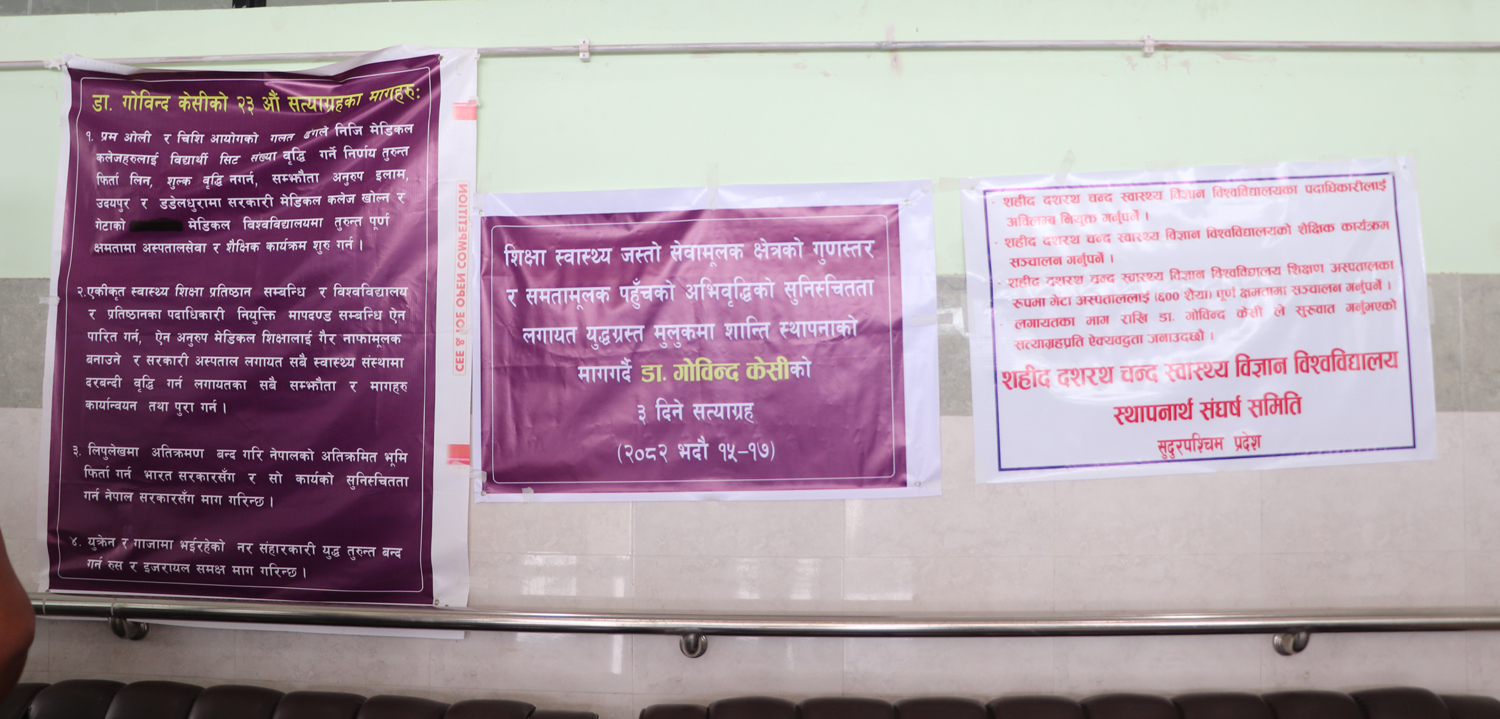 डा. गोविन्द केसीको २३ औं सत्याग्रहका मागहरु:
१. प्रम ओली र चिशि आयोगको गलत ढंगले निजि मेडिकल
कलेजहरुलाई विद्यार्थी सिट संख्या वृद्धि गर्ने निर्णय तुरुन्त
फिर्ता लिन, शुल्क वृद्धि नगर्न, सम्झौता अनुरुप इलाम,
उदयपुर र डडेलधुरामा सरकारी मेडिकल कलेज खोल्न र
गेटाको मेडिकल विश्वविद्यालयमा तुरुन्त पूर्ण
क्षमतामा अस्पतालसेवा र शैक्षिक कार्यक्रम शुरु गर्न ।
२.एकीकृत स्वास्थ्य शिक्षा प्रतिष्ठान सम्बन्धि र विश्वविद्यालय
र प्रतिष्ठानका पदाधिकारी नियुक्ति मापदण्ड सम्बन्धि ऐन
पारित गर्न, ऐन अनुरुप मेडिकल शिक्षालाई गैर नाफामूलक
बनाउने र सरकारी अस्पताल लगायत सबै स्वास्थ्य संस्थामा
दरबन्दी वृद्धि गर्न लगायतका सबै सम्झौता र मागहरु
कार्यान्वयन तथा पुरा गर्न ।
३. लिपुलेखमा अतिक्रमण बन्द गरि नेपालको अतिक्रमित भूमि
फिर्ता गर्न भारत सरकारसँग र सो कार्यको सुनिस्चितता
गर्न नेपाल सरकारसँग माग गरिन्छ ।
४. युक्रेन र गाजामा भईरहेको नर संहारकारी युद्ध तुरुन्त बन्द
गर्न रुस र इजरायल समक्ष माग गरिन्छ ।
CEE & IOE OPEN COMPETITION
शिक्षा स्वास्थ्य जस्तो सेवामूलक क्षेत्रको गुणस्तर
र समतामूलक पहुँचको अभिवृद्धिको सुनिस्चितता
लगायत युद्धग्रस्त मुलुकमा शान्ति स्थापनाको
मागगर्दै डा. गोविन्द केसीको
३ दिने सत्याग्रह
(२०८२ भदौ १५-१७)
- शहीद दशरथ चन्द स्वास्थ्य विज्ञान विश्वविद्यालयका पदाधिकारीलाई
अविलम्ब नियुक्त गर्नुपर्ने ।
- शहीद दशरथ चन्द स्वास्थ्य विज्ञान विश्वविद्यालयको शैक्षिक कार्यक्रम
सञ्चालन गर्नुपर्ने ।
- शहीद दशरथ चन्द स्वास्थ्य विज्ञान विश्वविद्यालय शिक्षण अस्पतालका
रूपमा गेटा अस्पताललाई (६०० शैया) पूर्ण क्षमतामा सञ्चालन गर्नुपर्ने ।
लगायतका माग राखि डा. गोविन्द केसी ले सुरुवात गर्नुभएको
सत्याग्रहप्रति ऐक्यवद्धता जनाउदछौ ।
शहीद दशरथ चन्द स्वास्थ्य विज्ञान विश्वविद्यालय
स्थापनार्थ संघर्ष समिति
सुदुरपश्चिम प्रदेश